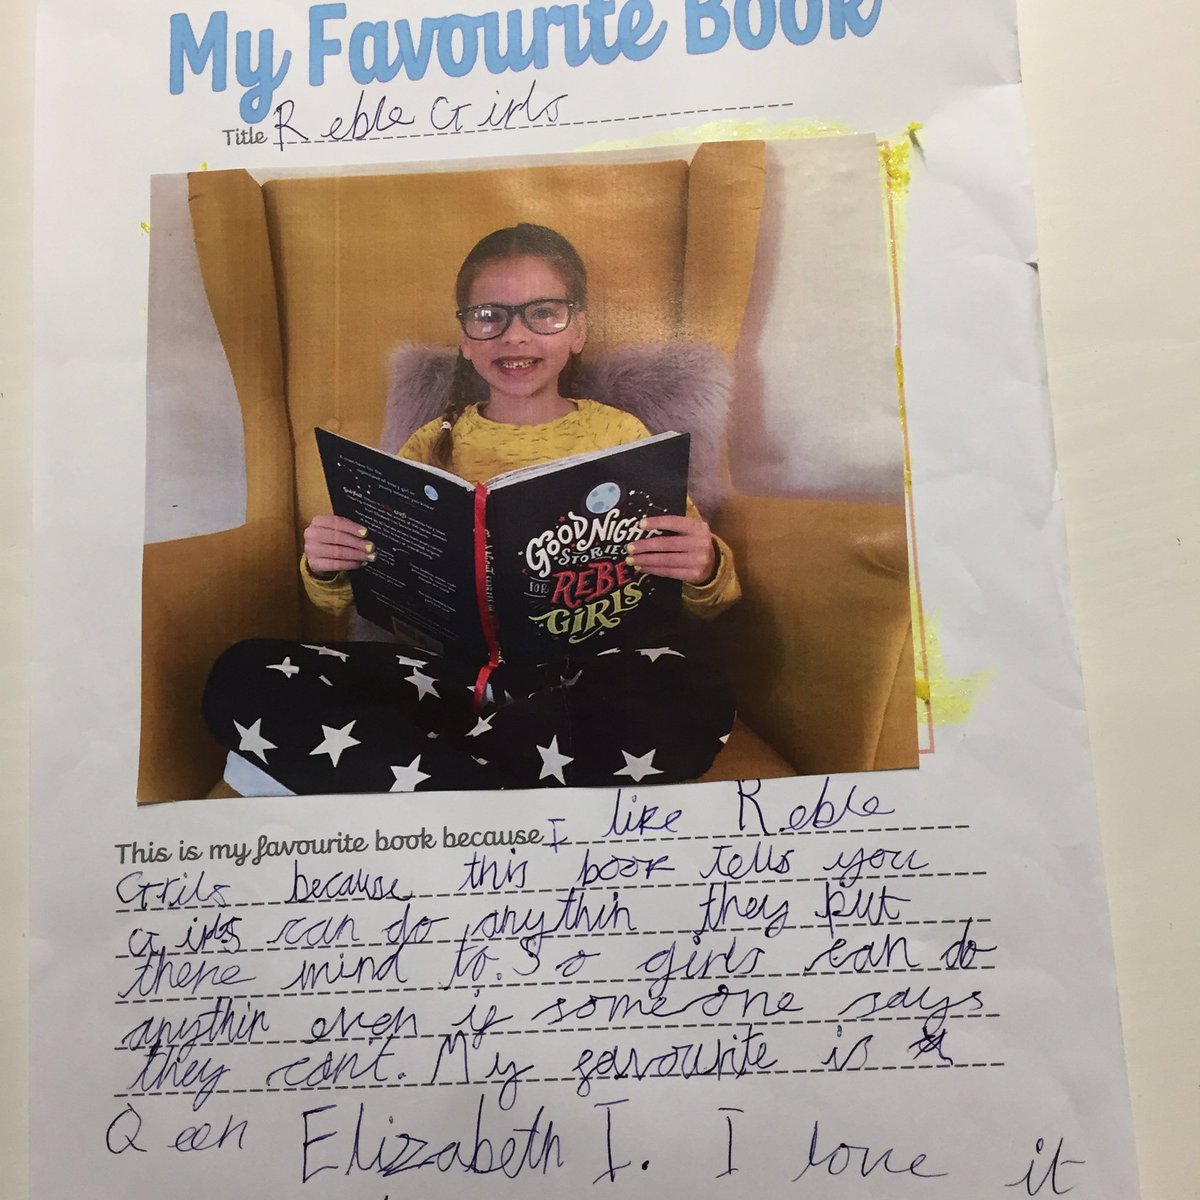 My Favourite Book
Title Reble Girls
GOOD NIGHT
STORIES
FOR REBEL
GIRLS
This is my favourite book because I like Reble
Grils because this book tells you
Girls can do anythin they put
there mind to. So girls can do
anythin even if someone says
they can't. My favourite is
Qeen Elizabeth I. I love it